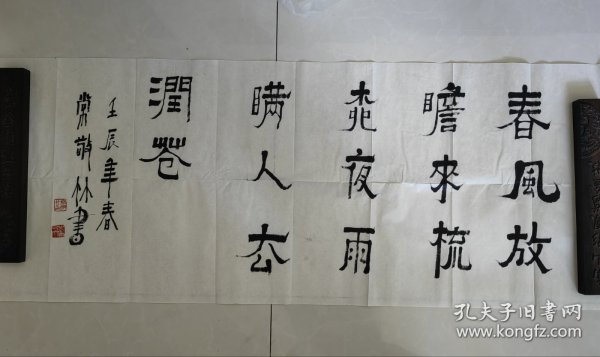 春風放
膽來梳
柳夜雨
瞞人去
潤花
壬辰年春
常敬林書
孔夫子旧书网
www.kongfz.com